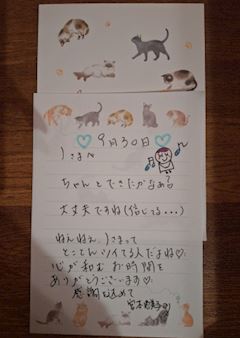 ♡ 9月30日 ♡
Jさまへ
ちゃんとできたかなぁぁ
大丈夫ですね(信じてる...)
ねぇねぇ、Jさまって
とことんツイてる人だよね♡
心が和む お時間を
ありがとうございます♡
感謝をこめて
宮本